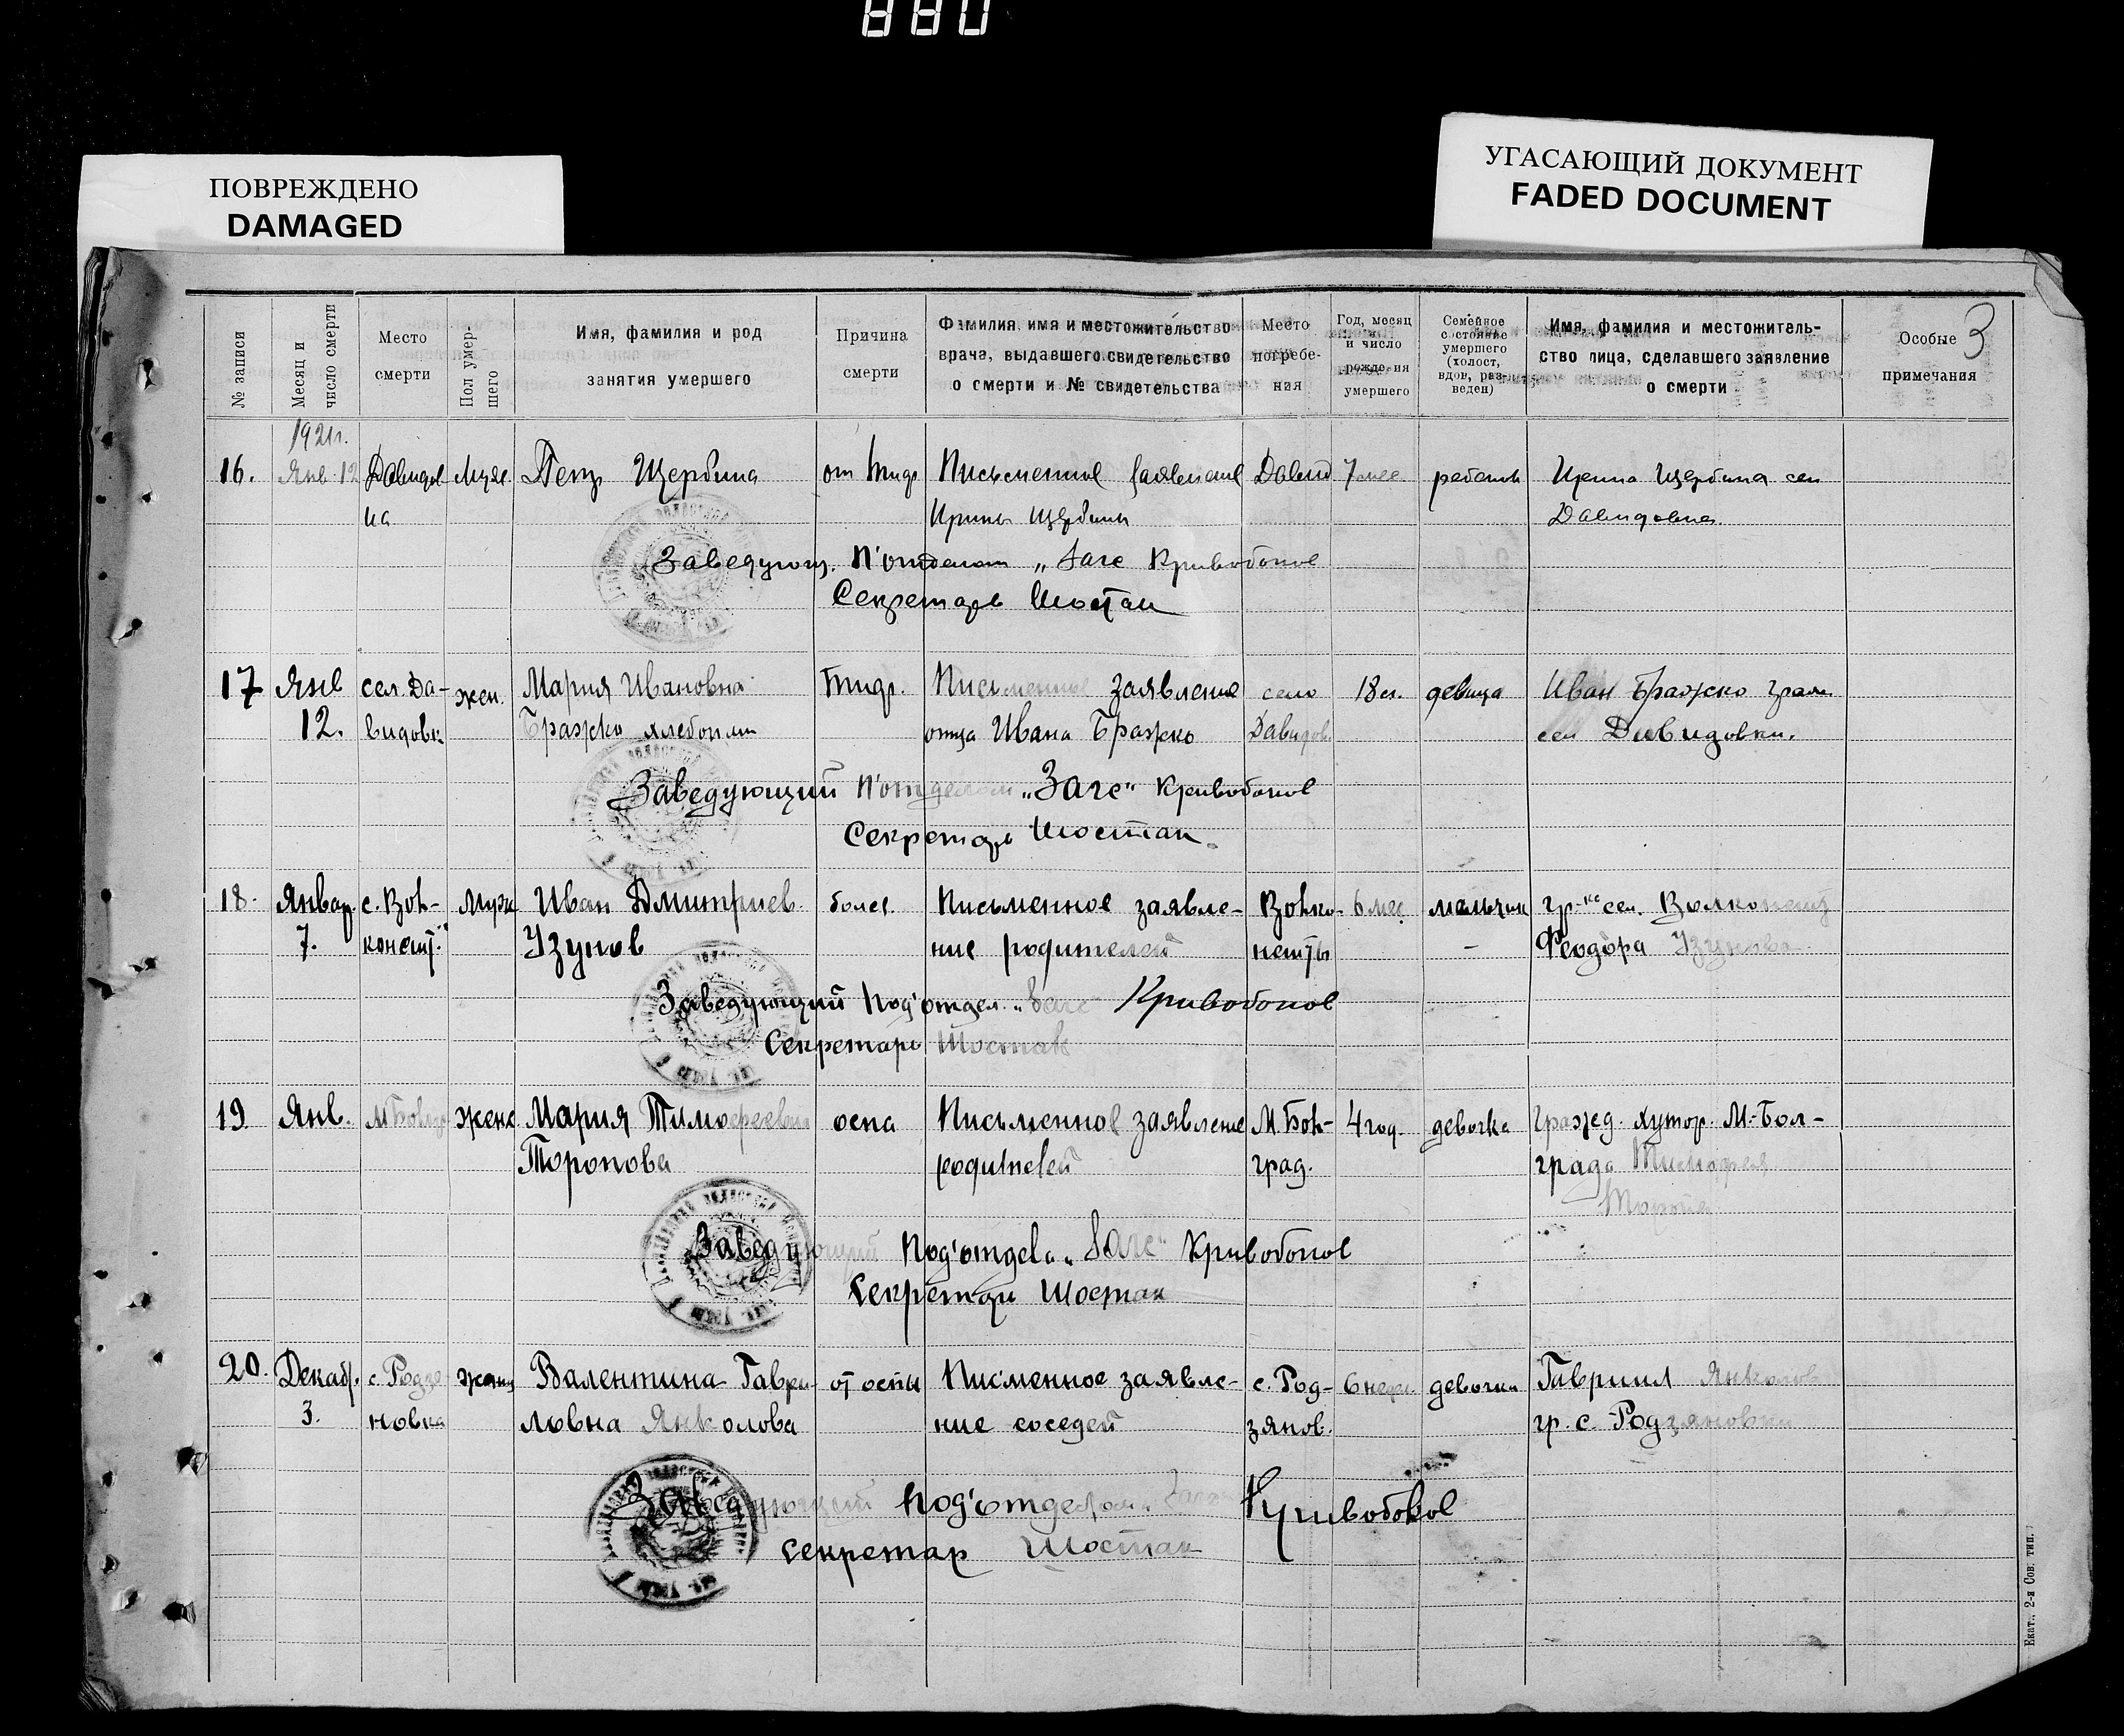 880
ПОВРЕЖДЕНО
DAMAGED
УГАСАЮЩИЙ ДОКУМЕНТ
FADED DOCUMENT
3
№ записи
Месяц и число смерти
Место смерти
Пол умершего
Имя, фамилия и род занятия умершего
Причина смерти
Фамилия, имя и местожительство врача, выдавшего свидетельство о смерти и № свидетельства
Место погребения
Год, месяц и число рождения умершего
Семейное состояние умершего (холост, вдов, разведен)
Имя, фамилия и местожительство лица, сделавшего заявление о смерти
Особые примечания
1921 г.
16. Янв. 12 Давидов Муж. Петр Щербина от тифа Письменное заявление Давид 7 мес. ребенок Ирина Щербина сел
ка Ирины Щербины Давидовка
Заведующ. п'отделом „Загс Кривобоков
Секретарь Шостак
17 Янв сел. Да- жен. Мария Ивановна Тиф. Письменное заявление село 18 л. девица Иван Бражко граж.
12. видовк Бражко хлебопаш отца Ивана Бражко Давидов. сел Давидовки.
Заведующий п'отделом „Загс" Кривобоков
Секретарь Шостак
18. Январ. с. Вол- Муж Иван Дмитриев. болез. Письменное заявле- Волко- 6 мес. мальчик гр-ке сел. Волконешт
7. конешт. Узунов ние родителей нешты Феодора Узунова
Заведующий под'отдел. „Загс" Кривобоков
Секретарь Шостак
19 Янв. М Болгр женс Мария Тимофеевна оспа Письменное заявление М. Бол- 4 год. девочка Гражд. хутор. М.-Бол-
Торопова родителей град. града Тимофея
Заведующий под'отдела „Загс" Кривобоков
Секретарь Шостак
20. Декабр. с. Родзя женщ Валентина Гаври- от оспы Писменное заявле- с. Род- 6 недел девочка Гавриил Янколов
3. новка ловна Янколова ние соседей зянов. гр. с. Родзяновки
Заведующий под'отделом „Загс Кривобоков
секретар Шостак
Екат., 2-я Сов. тип.